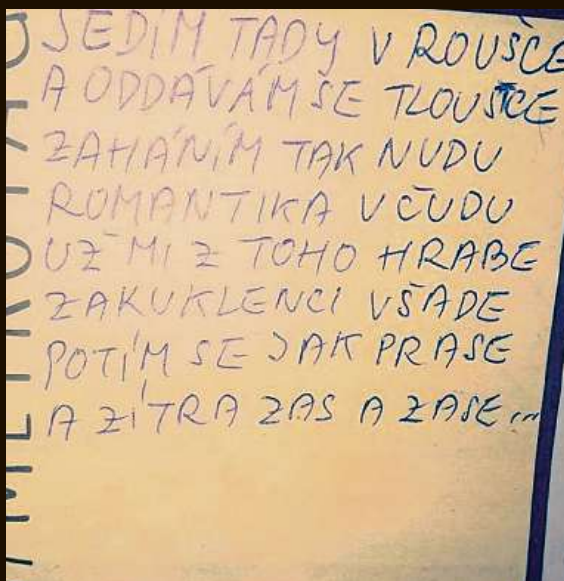 SEDÍM TADY V ROUŠCE
A ODDÁVÁM SE TLOUŠTCE
ZAHÁNÍM TAK NUDU
ROMANTIKA V ČUDU
UŽ MI Z TOHO HRABE
ZAKUKLENCI VŠADE
POTÍM SE JAK PRASE
A ZÍTRA ZAS A ZASE...